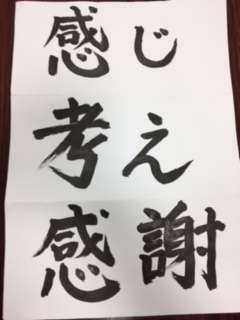 感じ
考え
感謝